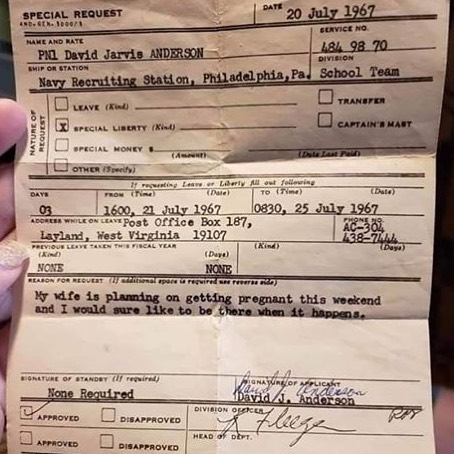 SPECIAL REQUEST
DATE 20 July 1967
NAME AND RATE
SERVICE NO.
PN1 David Jarvis ANDERSON
484 98 70
SHIP OR STATION
DIVISION
Navy Recruiting Station, Philadelphia,Pa.
School Team
NATURE OF REQUEST
LEAVE (Kind)
TRANSFER
x SPECIAL LIBERTY (Kind)
CAPTAIN'S MAST
SPECIAL MONEY $
(Amount)
(Date Last Paid)
OTHER (Specify)
If requesting Leave or Liberty fill out following
DAYS
FROM (Time) (Date)
TO (Time) (Date)
03
1600, 21 July 1967
0830, 25 July 1967
ADDRESS WHILE ON LEAVE Post Office Box 187,
Layland, West Virginia 19107
PHONE NO.
AC-304
438-7444
PREVIOUS LEAVE TAKEN THIS FISCAL YEAR
(Kind) (Days) (Kind) (Days)
NONE NONE
REASON FOR REQUEST (If additional space is required use reverse side)
My wife is planning on getting pregnant this weekend
and I would sure like to be there when it happens.
SIGNATURE OF STANDBY (If required)
SIGNATURE OF APPLICANT
None Required
David J. Anderson
David J. Anderson
APPROVED DISAPPROVED
DIVISION OFFICER
APPROVED DISAPPROVED
HEAD OF DEPT.